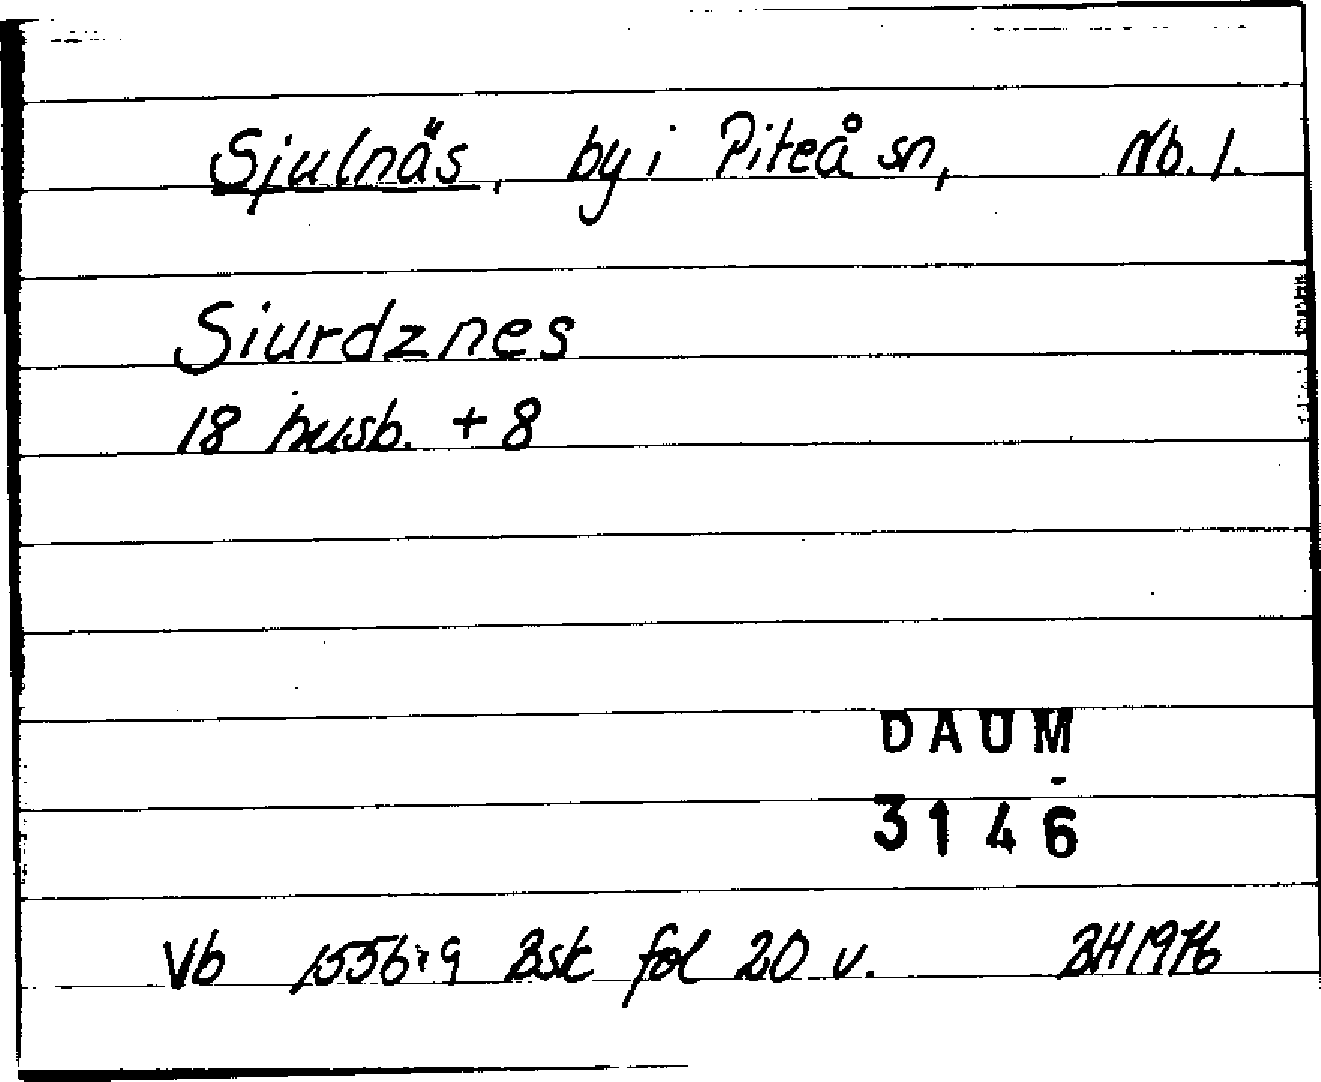 Sjulnäs, by i Piteå sn, Nb. l.
Siurdznes
18 husb. + 8
DAUM
3146
Vb 1556:9 Bsk fol 20 v. BH 1976